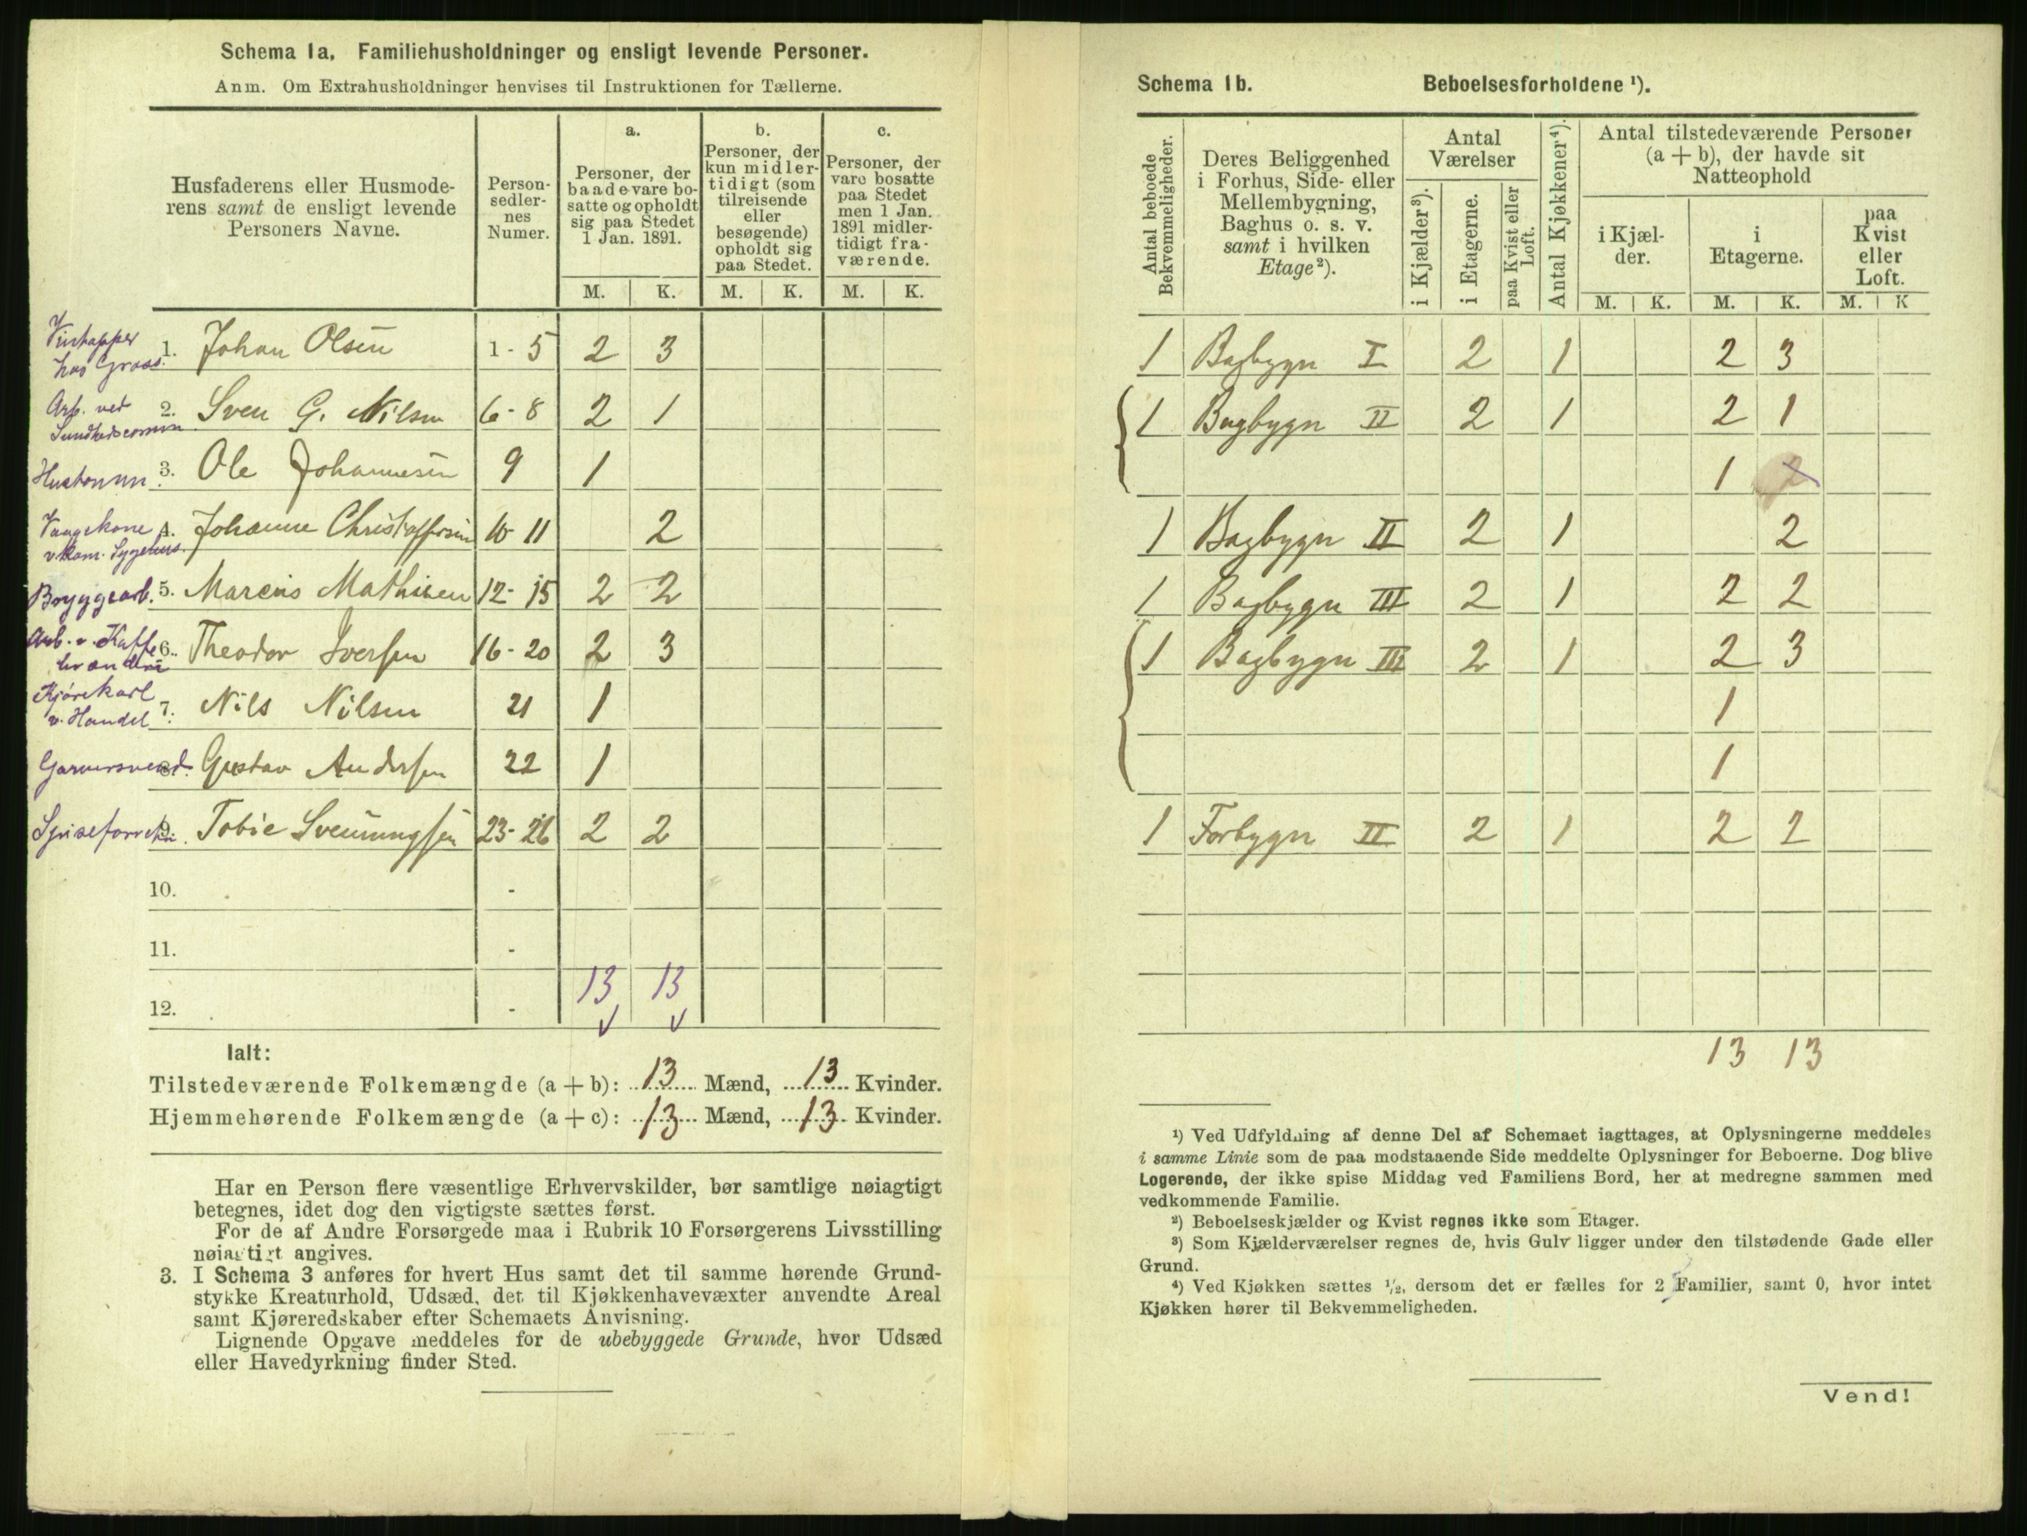 Schema 1a. Familiehusholdninger og ensligt levende Personer.
Anm. Om Extrahusholdninger henvises til Instruktionen for Tællerne.
Husfaderens eller Husmoderens samt de ensligt levende Personers Navne.
Personsedlernes Numer.
a.
Personer, der baade vare bosatte og opholdt sig paa Stedet 1 Jan. 1891.
b.
Personer, der kun midlertidigt (som tilreisende eller besøgende) opholdt sig paa Stedet.
c.
Personer, der vare bosatte paa Stedet men 1 Jan. 1891 midlertidigt fraværende.
M. K. M. K. M. K.
Vintapper hos Graas. 1. Johan Olsen 1 - 5 2 3
Arb. ved Sundhedscomm 2. Sven G. Nilsen 6 - 8 2 1
3. Ole Johannesen 9 1
Vaagekone v. Kom. Sygehus. 4. Johanne Christoffersen 10 - 11 2
Bryggearb. 5. Marcus Mathisen 12 - 15 2 2
Arb. v. Kaffebrænderi 6. Theodor Iversen 16 - 20 2 3
Kjørekarl v. Handel 7. Nils Nilsen 21 1
Garversvend 8. Gustav Andersen 22 1
9. Tobie Svenningsen 23 - 26 2 2
10. -
11. -
13 13
12. -
Ialt:
Tilstedeværende Folkemængde (a + b): 13 Mænd, 13 Kvinder.
Hjemmehørende Folkemængde (a + c): 13 Mænd, 13 Kvinder.
Har en Person flere væsentlige Erhvervskilder, bør samtlige nøiagtigt
betegnes, idet dog den vigtigste sættes først.
For de af Andre Forsørgede maa i Rubrik 10 Forsørgerens Livsstilling
nøiagtigt angives.
3. I Schema 3 anføres for hvert Hus samt det til samme hørende Grund-
stykke Kreaturhold, Udsæd, det til Kjøkkenhavevæxter anvendte Areal
samt Kjøreredskaber efter Schemaets Anvisning.
Lignende Opgave meddeles for de ubebyggede Grunde, hvor Udsæd
eller Havedyrkning finder Sted.
Schema 1b. Beboelsesforholdene ¹).
Antal beboede Bekvemmeligheder.
Deres Beliggenhed i Forhus, Side- eller Mellembygning, Baghus o. s. v. samt i hvilken Etage ²).
Antal Værelser
i Kjælder ³).
i Etagerne.
paa Kvist eller Loft.
Antal Kjøkkener ⁴).
Antal tilstedeværende Personer (a + b), der havde sit Natteophold
i Kjælder.
i Etagerne.
paa Kvist eller Loft.
M. K. M. K. M. K
1 Bagbygn I 2 1 2 3
1 Bagbygn II 2 1 2 1
1
1 Bagbygn II 2 1 2
1 Bagbygn III 2 1 2 2
1 Bagbygn III 2 1 2 3
1
1
1 Forbygn II 2 1 2 2
13 13
¹) Ved Udfyldning af denne Del af Schemaet iagttages, at Oplysningerne meddeles
i samme Linie som de paa modstaaende Side meddelte Oplysninger for Beboerne. Dog blive
Logerende, der ikke spise Middag ved Familiens Bord, her at medregne sammen med
vedkommende Familie.
²) Beboelseskjælder og Kvist regnes ikke som Etager.
³) Som Kjælderværelser regnes de, hvis Gulv ligger under den tilstødende Gade eller
Grund.
⁴) Ved Kjøkken sættes ½, dersom det er fælles for 2 Familier, samt 0, hvor intet
Kjøkken hører til Bekvemmeligheden.
Vend!